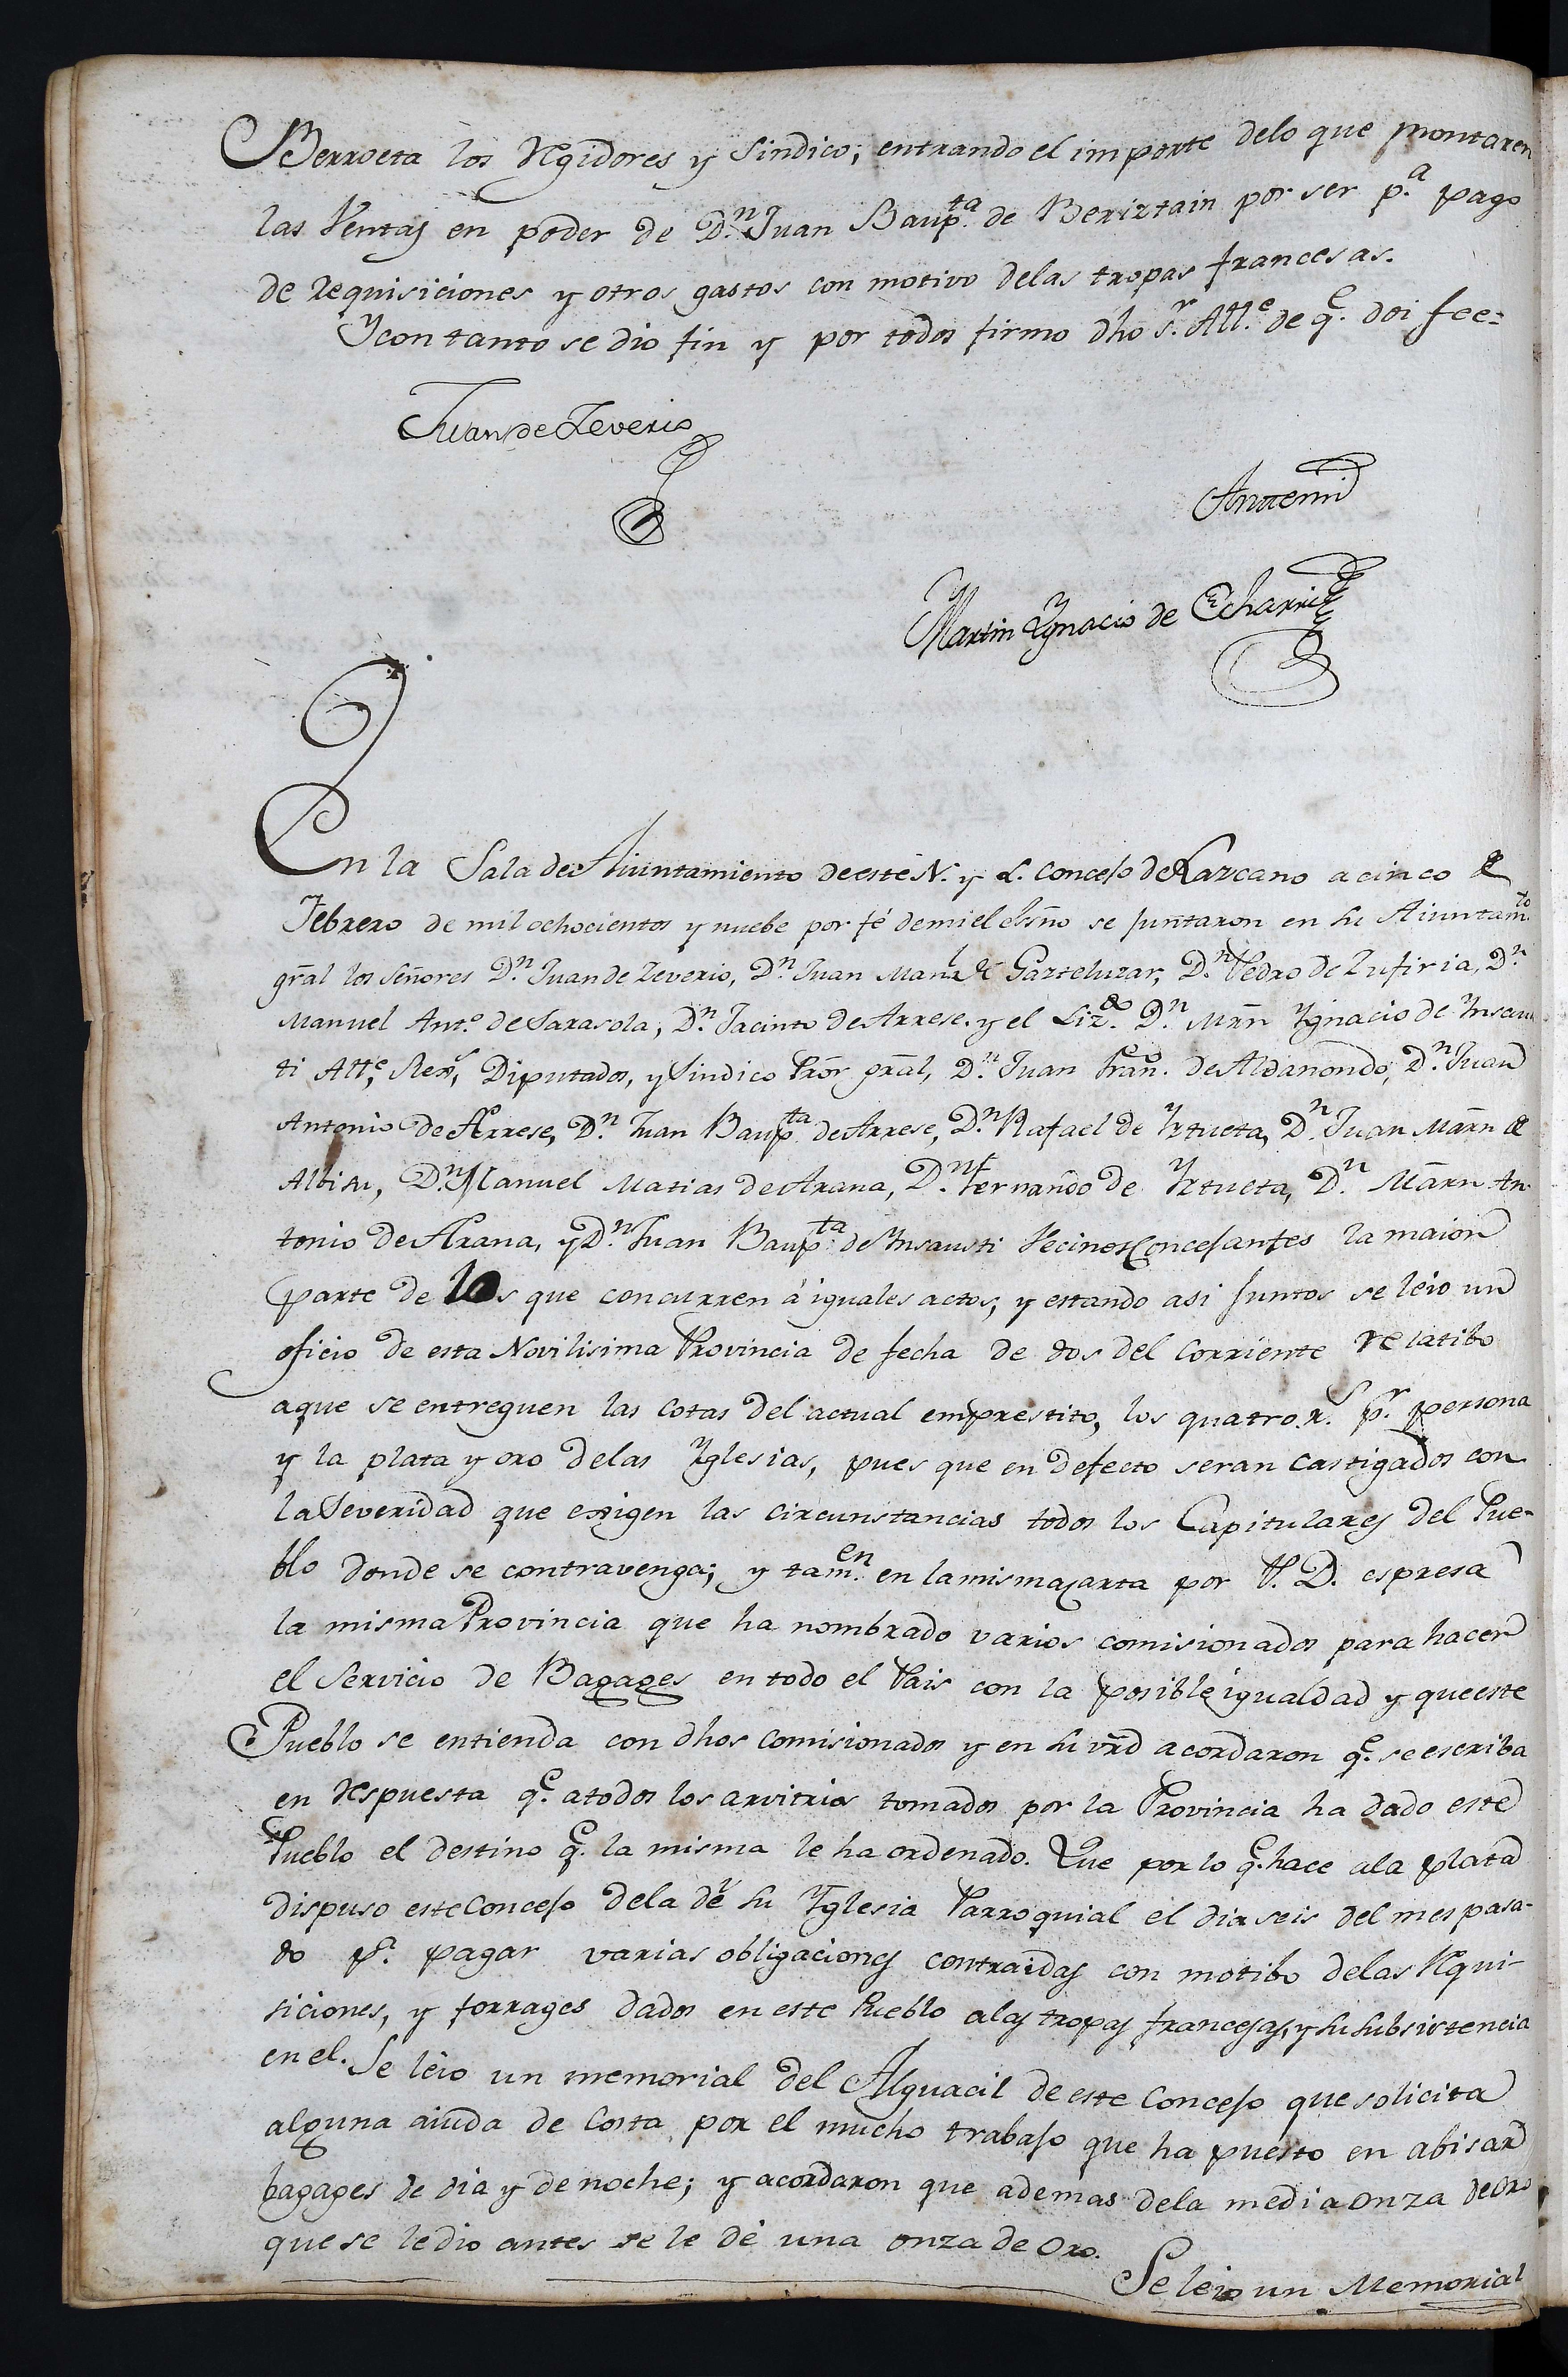 Berroeta los Regidores y Sindico; entrando el importe delo que montaren
las Ventas en poder de D.n Juan Baup.ta de Beriztain por ser p.a pago
de requisiciones y otros gastos con motivo delas tropas francesas.
Y con tanto se dio fin y por todos firmo dho s.r All.e de q.e doi fee=
Juan de Zeverio
Antemi
Martin Ygnacio de Echarri
En la Sala de Aiuntamiento de este N. y L. concejo de Lazcano a cinco de
Febrero de mil ochocientos y nuebe por fé de mi el essño se juntaron en su Aiuntam.to
gral los señores D.n Juan de Zeverio, D.n Juan Man.l de Gazteluzar, D.n Pedro de Zufiria, D.n
Manuel Ant.o de Sarasola, D.n Jacinto de Arrese. y el Liz.do D.n Mrn Ygnacio de Insaus
ti All.e, Rex.s, Diputados, y Sindico Pror gral, D.n Juan Fran.co de Aldanondo, D.n Juan
Antonio de Arrese, D.n Juan Baup.ta de Arrese, D.n Rafael de Yztueta, D.n Juan Marn de
Albisu, D.n Manuel Matias de Arana, D.n Fernando de Yztueta, D.n Marn An
tonio de Arana, y D.n Juan Baup.ta de Insausti Vecinos Concejantes la maior
parte de los que concurren á iguales actos; y estando asi juntos se leio un
oficio de esta Novilisima Provincia de fecha de dos del Corriente relatibo
aque se entreguen las cotas del actual emprestito, los quatro r.s p.r persona
y la plata y oro delas Yglesias, pues que en defecto seran castigados con
la Severidad que exigen las circunstancias todos los Capitulares del Pue-
blo donde se contravenga; y tam.en en la misma carta por P. D. espresa
la misma Provincia que ha nombrado varios comisionados para hacer
el Servicio de Bagages en todo el Pais con la posible igualdad y que este
Pueblo se entienda con dhos comisionados y en su vrd acordaron q.e se escriba
en respuesta q.e a todos los arvitrios tomados por la Provincia ha dado este
Pueblo el destino q.e la misma le ha ordenado. Que por lo q.e hace ala plata
dispuso este Concejo dela de su Yglesia Parroquial el dia seis del mes pasa-
do p.a pagar varias obligaciones contraidas con motibo delas Requi-
siciones, y forrages dados en este Pueblo alas tropas francesas, y su subsistencia
en el. Se leio un memorial del Alguacil de este Concejo que solicita
alguna aiuda de Costa por el mucho trabajo que ha puesto en abisar
bagages de dia y de noche; y acordaron que ademas dela media onza de oro
que se le dio antes se le dé una onza de Oro.
Se leio un Memorial